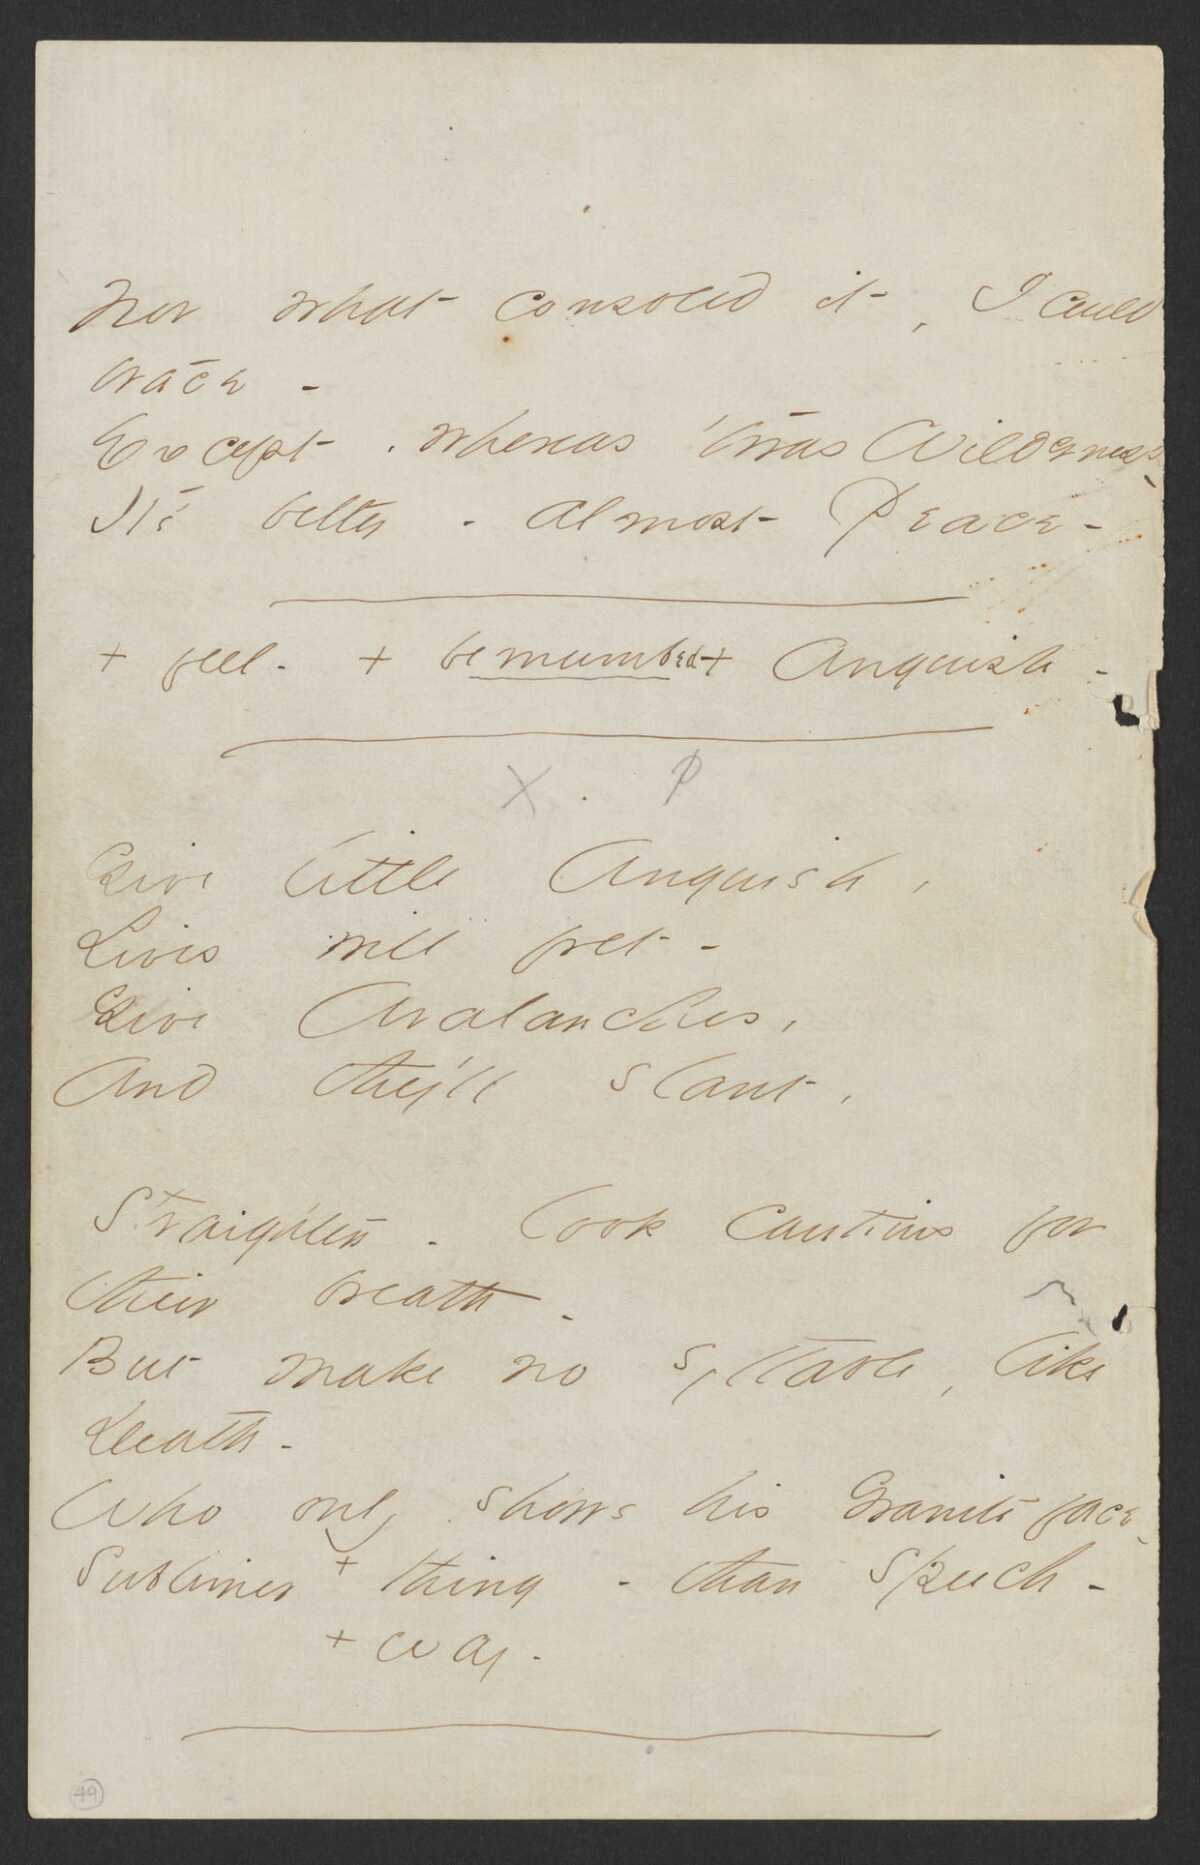 Nor what consoled it, I could
trace -
Except, whereas 'twas Wilderness,
It's better - almost Peace -
+ feel - + benumbed + Anguish -
X . P
Give little Anguish,
Lives will fret -
Give Avalanches,
And they'll slant,
Straighten - look cautious for
their breath -
But make no syllable, like
Death -
Who only shows his Granite face -
Sublimer + thing - than Speech -
+ way -
49